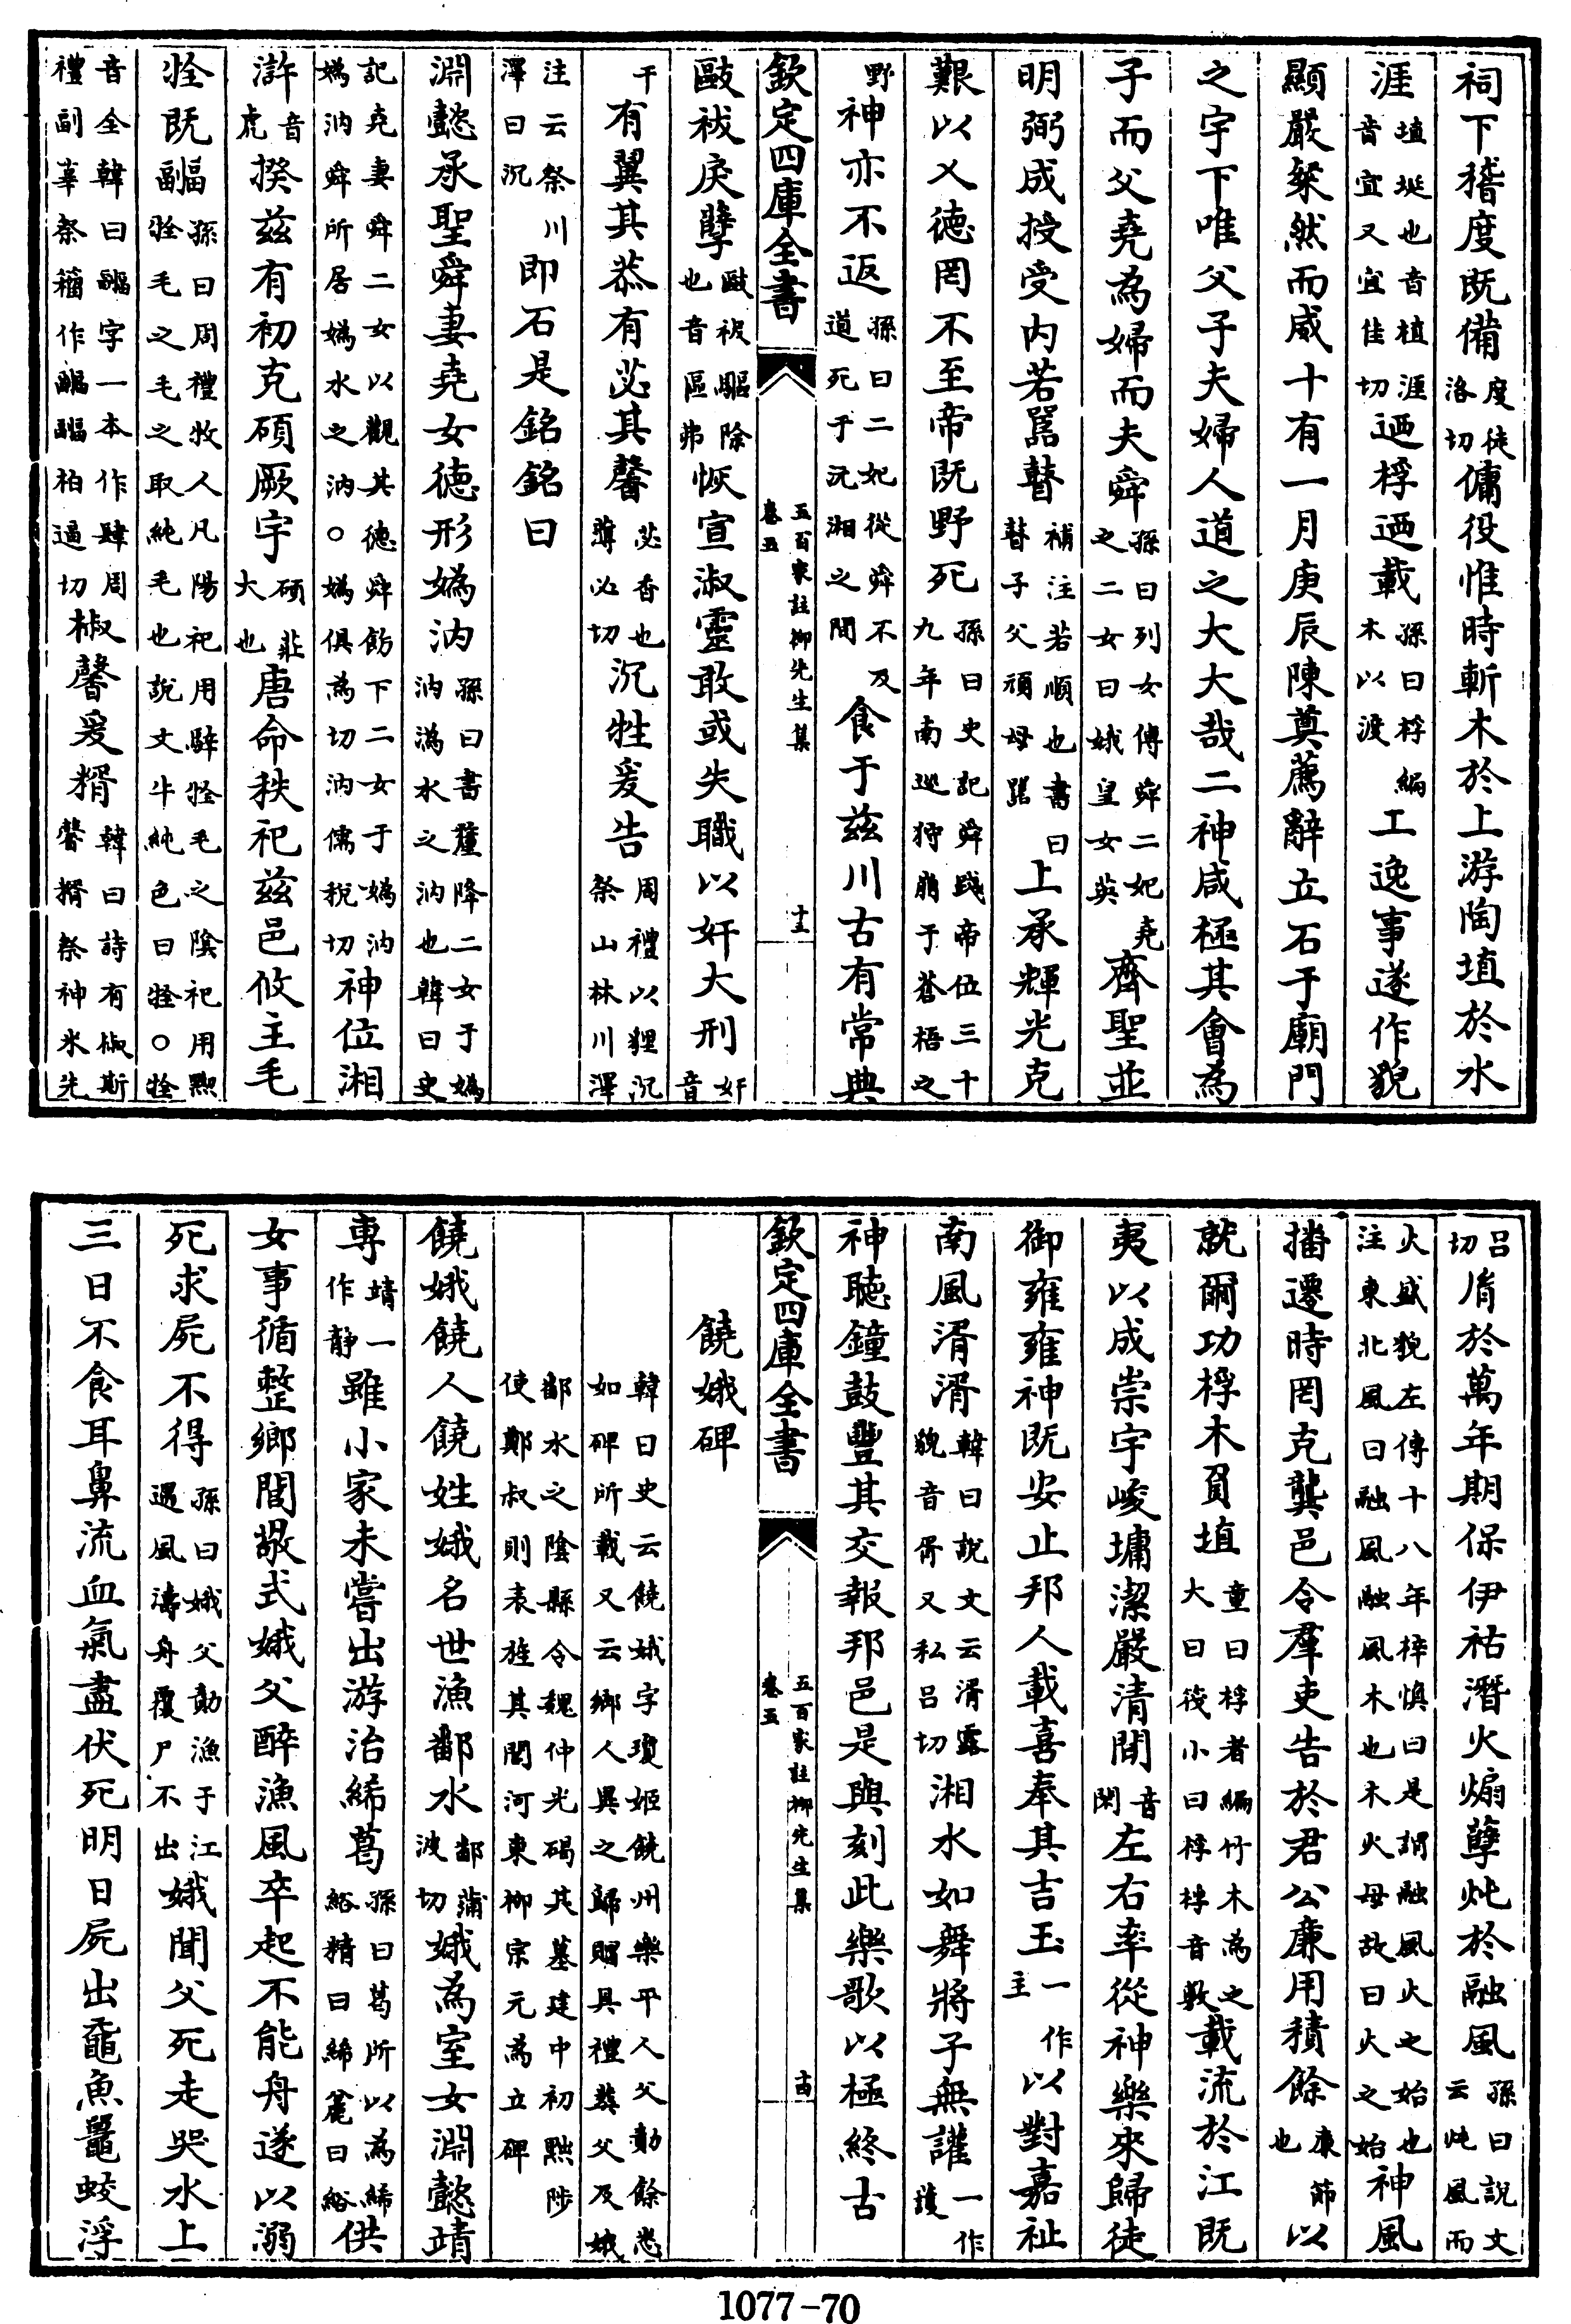 祠下稽度既備度徒洛切傭役惟時斬木於上游陶埴於水
涯埴埏也音植涯音宜又宜佳切迺桴迺載孫曰桴編木以渡工逸事遂作貌
顯嚴粲然而威十有一月庚辰陳奠薦辭立石于廟門
之宇下唯父子夫婦人道之大大哉二神咸極其會為
子而父堯為婦而夫舜孫曰列女傳舜二妃堯之二女曰娥皇女英齊聖並
明弼成授受内若嚚瞽補注若順也書曰瞽子父頑母嚚上承輝光克
艱以乂德罔不至帝既野死孫曰史記舜踐帝位三十九年南巡狩崩于蒼梧之
野神亦不返孫曰二妃從舜不及道死于沅湘之間食于兹川古有常典
欽定四庫全書 五百家註柳先生集 卷五 十三
敺祓戾孽敺祓驅除也音區弗恢宣淑靈敢或失職以奸大刑奸音
干有翼其恭有苾其馨苾香也薄必切沉牲爰告周禮以貍沉祭山林川澤
注云祭川澤曰沉即石是銘銘曰
淵懿承聖舜妻堯女德形媯汭孫曰書釐降二女于媯汭媯水之汭也韓曰史
記堯妻舜二女以觀其德舜飭下二女于媯汭媯汭舜所居媯水之汭○媯俱為切汭儒稅切神位湘
滸音虎揆兹有初克碩厥宇碩大也唐命秩祀兹邑攸主毛
牷既疈孫曰周禮牧人凡陽祀用騂牷毛之陰祀用黝牷毛之毛之取純毛也說文牛純色曰牷○牷
音全韓曰疈字一本作肆周禮副辜祭籀作疈疈柏逼切椒馨爰糈韓曰詩有椒斯馨糈祭神米先
吕切胥於萬年期保伊祜潛火煽孽炖於融風孫曰說文云炖風而
火盛貌左傳十八年梓慎曰是謂融風火之始也注東北風曰融風融風木也木火母故曰火之始神風
播遷時罔克龔邑令羣吏告於君公廉用積餘廉節也以
就爾功桴木負埴童曰桴者編竹木為之大曰筏小曰桴桴音敷載流於江既
夷以成崇宇峻墉潔嚴清閒音閑左右率從神樂來歸徒
御雍雍神既安止邦人載喜奉其吉玉一作主以對嘉祉
南風湑湑韓曰說文云湑露貌音胥又私吕切湘水如舞將子無讙一作護
神聽鐘鼓豐其交報邦邑是與刻此樂歌以極終古
欽定四庫全書 五百家註柳先生集 卷五 十四
饒娥碑
韓曰史云饒娥字瓊姬饒州樂平人父勣餘悉如碑所載又云鄉人異之歸賵具禮葬父及娥
鄱水之陰縣令魏仲光碣其墓建中初黜陟使鄭叔則表旌其閭河東柳宗元為立碑
饒娥饒人饒姓娥名世漁鄱水鄱蒲波切娥為室女淵懿靖
專靖一作静雖小家未嘗出游治絺葛孫曰葛所以為絺綌精曰絺麄曰綌供
女事循整鄉閭敬式娥父醉漁風卒起不能舟遂以溺
死求屍不得孫曰娥父勣漁于江遇風濤舟覆尸不出娥聞父死走哭水上
三日不食耳鼻流血氣盡伏死明日屍出黿魚鼉蛟浮
1077-70